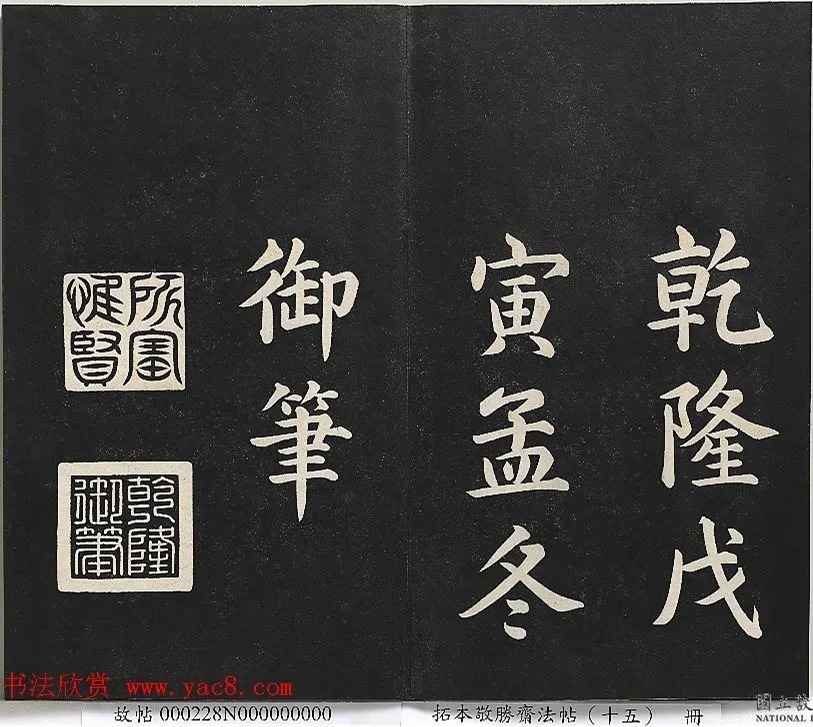 乾隆戊
寅孟冬
御筆
所寶
惟賢
乾隆
御筆
书法欣赏 www.yac8.com
故帖 000228N000000000
拓本敬勝齋法帖（十五） 冊
國立故
NATIONAL